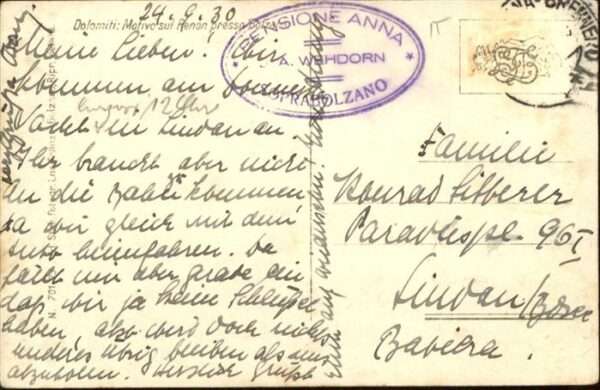 24.9.30
Dolomiti: Motivo sul Renon presso Bolzano
PENSIONE ANNA
A. WEHDORN
SOPRABOLZANO
Meine Lieben! Wir
kommen am Donnerst
Nacht in Lindau an.
ungefähr 12 Uhr
Ihr braucht aber nicht
an die Bahn kommen
da wir gleich mit dem
Auto heimfahren. Da
fällt mir aber grade ein
daß wir ja keine Schlüssel
haben, also wird doch nichts
anderes übrig bleiben als uns
abzuholen. Herzliche Grüße
Edith auf Wiedersehen!
Familie
Konrad Silberer
Paradiespl. 96 I
Lindau/Bdsee
Baviera.